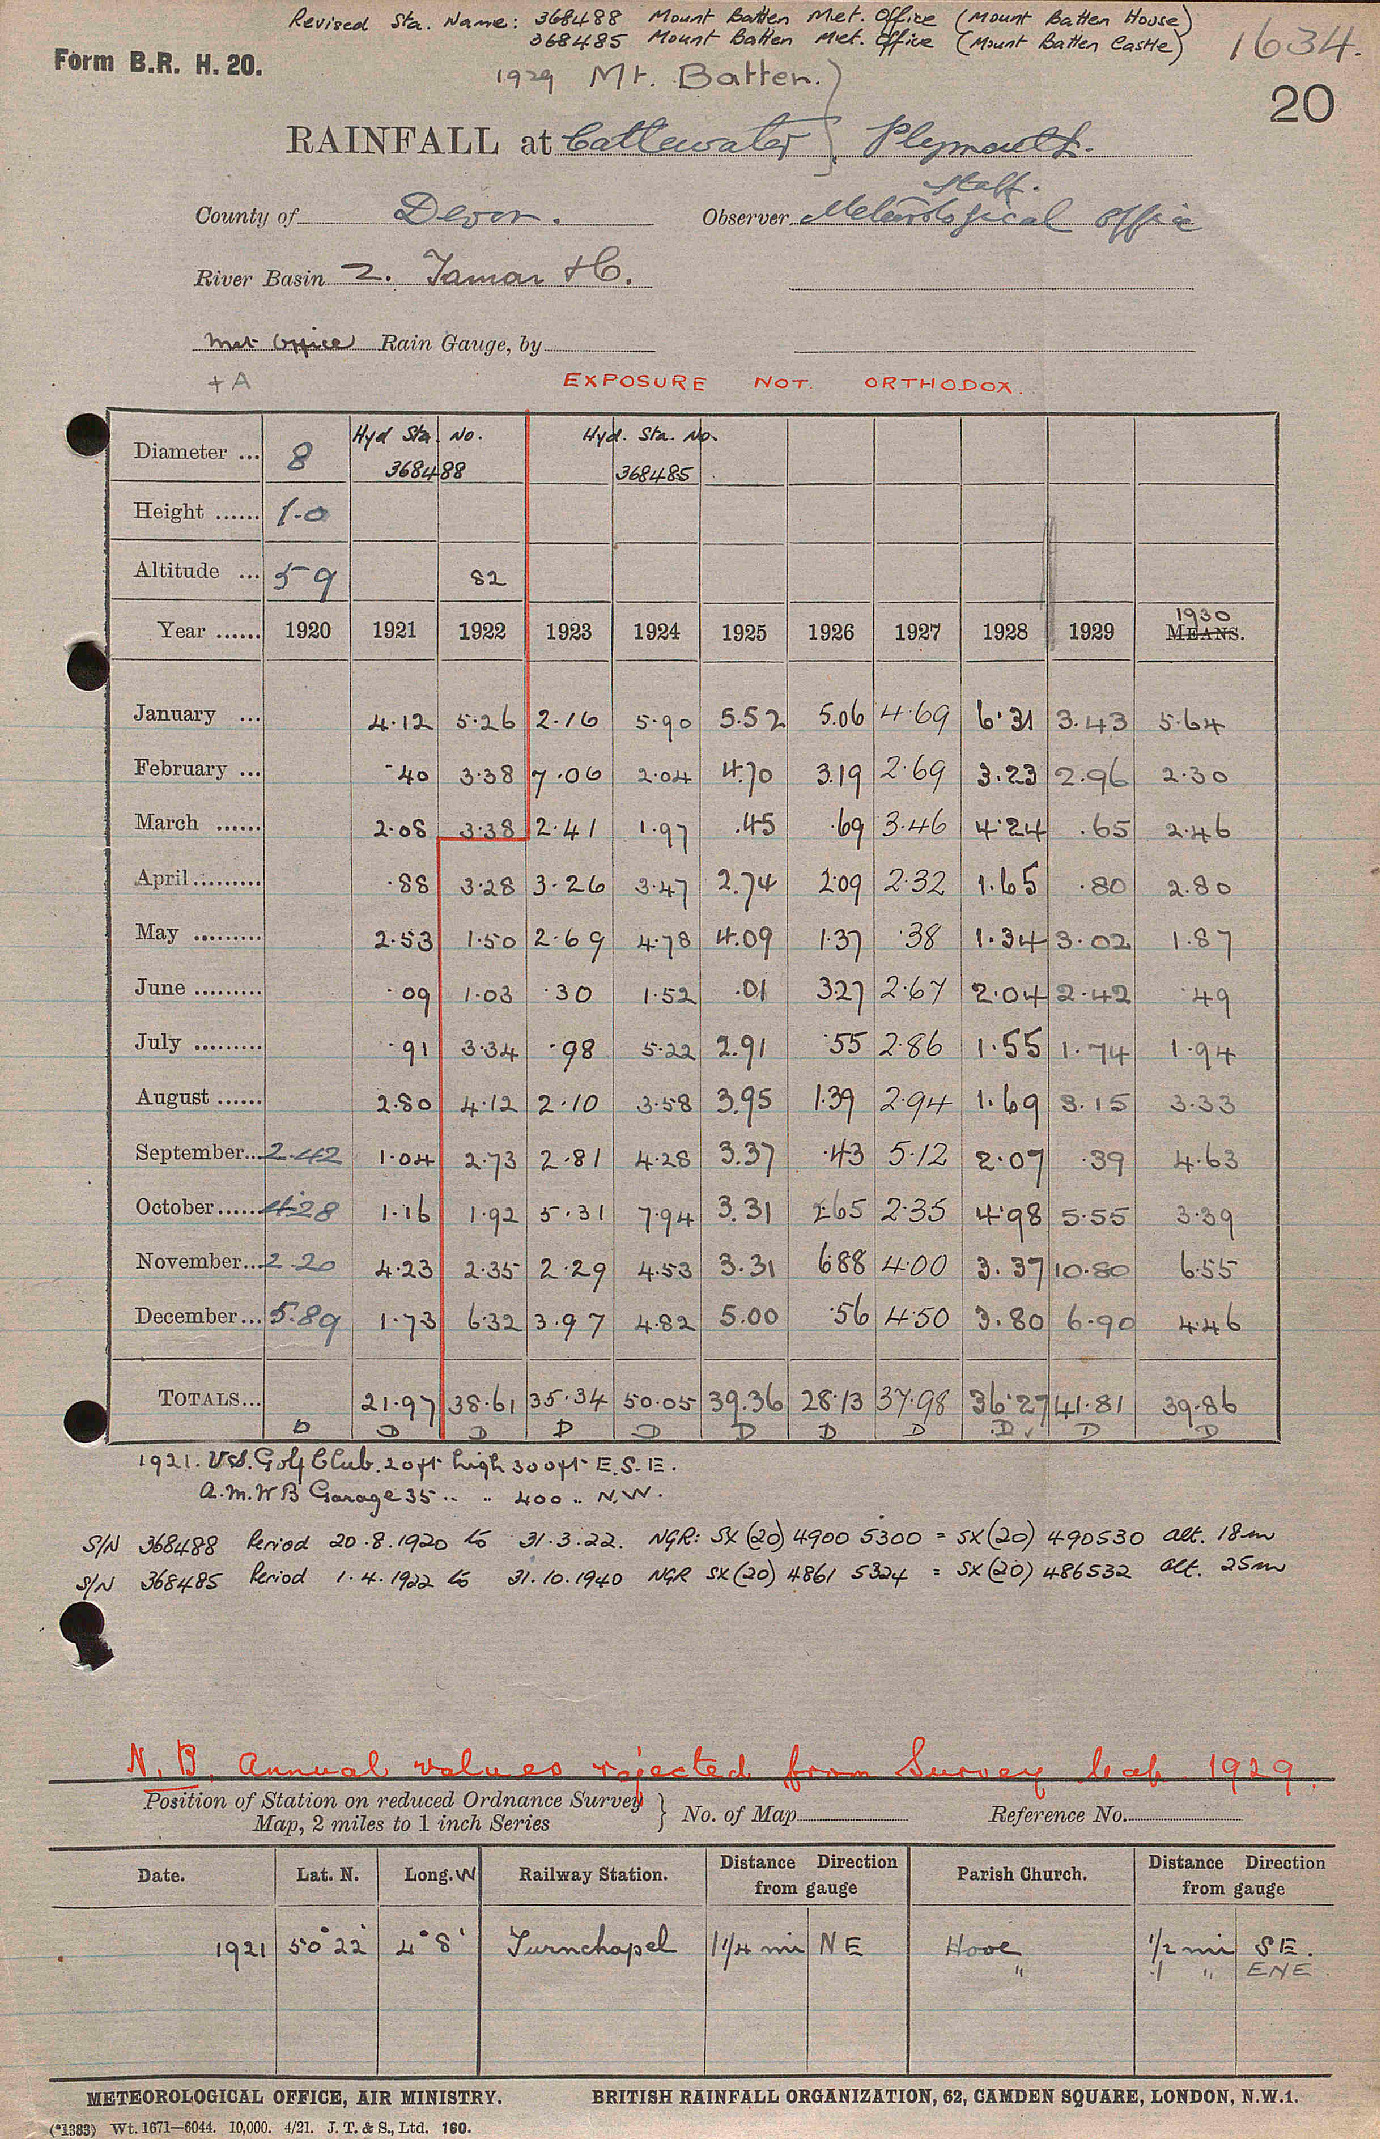 Revised Sta. Name: 368488 Mount Batten Met. Office (Mount Batten House)
368485 Mount Batten Met. Office (Mount Batten Castle)
1634.
Form B.R. H. 20.
1929 Mt. Batten.)
20
RAINFALL at Cattewater } Plymouth.
Staff.
County of Devon. Observer Meteorological Office
River Basin 2. Tamar &C.
Met Office Rain Gauge, by
+ A
EXPOSURE NOT ORTHODOX.
Diameter ... 8 Hyd Sta. No. 368488 Hyd. Sta. No. 368485
Height ...... 1-0
Altitude ... 59 82
Year ...... 1920 1921 1922 1923 1924 1925 1926 1927 1928 1929 1930 MEANS.
January ... 4·12 5·26 2·16 5·90 5.52 5.06 4·69 6·31 3·43 5·64
February ... ·40 3·38 7·06 2·04 4.70 3.19 2·69 3·23 2·96 2·30
March ...... 2·08 3·38 2·41 1·97 .45 ·69 3·46 4·24 ·65 2·46
April ......... ·88 3·28 3·26 3·47 2.74 2·09 2·32 1·65 ·80 2·80
May ......... 2·53 1·50 2·69 4·78 4.09 1·37 ·38 1·34 3·02 1·87
June ......... ·09 1·03 ·30 1·52 .01 3·27 2·67 2·04 2·42 ·49
July ......... ·91 3·34 ·98 5·22 2.91 ·55 2·86 1·55 1·74 1·94
August ...... 2·80 4·12 2·10 3·58 3.95 1·39 2·94 1·69 3·15 3·33
September... 2·42 1·04 2·73 2·81 4·28 3.37 ·43 5·12 2·07 ·39 4·63
October ...... 4·28 1·16 1·92 5·31 7·94 3.31 2·65 2·35 4·98 5·55 3·39
November... 2·20 4·23 2·35 2·29 4·53 3.31 6·88 4·00 3·37 10·80 6·55
December ... 5·89 1·73 6·32 3·97 4·82 5.00 ·56 4·50 3·80 6·90 4·46
TOTALS... 21·97 38·61 35·34 50·05 39.36 28·13 37·98 36·27 41·81 39·86
D D D D D D D D D D D
1921. Golf Club. 20ft high 300ft E.S.E.
A.M.W B Garage 35 .. .. 400 .. N.W.
S/N 368488 Period 20.8.1920 to 31.3.22. NGR: SX (20) 4900 5300 = SX (20) 490530 alt. 18m
S/N 368485 Period 1.4.1922 to 31.10.1940 NGR SX (20) 4861 5324 = SX (20) 486532 alt. 25m
N.B. Annual values rejected from Survey 1929.
Position of Station on reduced Ordnance Survey Map, 2 miles to 1 inch Series } No. of Map Reference No.
Date. Lat. N. Long. W Railway Station. Distance Direction from gauge Parish Church. Distance Direction from gauge
1921 50° 22' 4° 8' Turnchapel 1 1/4 mi NE Hooe 1/2 mi SE.
" ·1 " ENE
METEOROLOGICAL OFFICE, AIR MINISTRY. BRITISH RAINFALL ORGANIZATION, 62, CAMDEN SQUARE, LONDON, N.W.1.
(*1383) Wt. 1671—6044. 10,000. 4/21. J. T. & S., Ltd. 160.